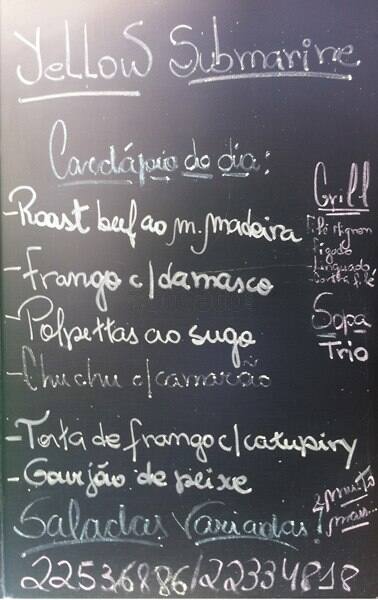 Yellow Submarine
Cardápio do dia:
-Roast beef ao m. madeira
-Frango c/damasco
-Polpettas ao sugo
-Chuchu c/camarão
-Torta de frango c/catupiry
-Gourjão de peixe
Saladas Variadas!
Grill
Filé mignon
fígado
-Linguado
Sopa
Trio
e muito
mais...
22536886/22334818